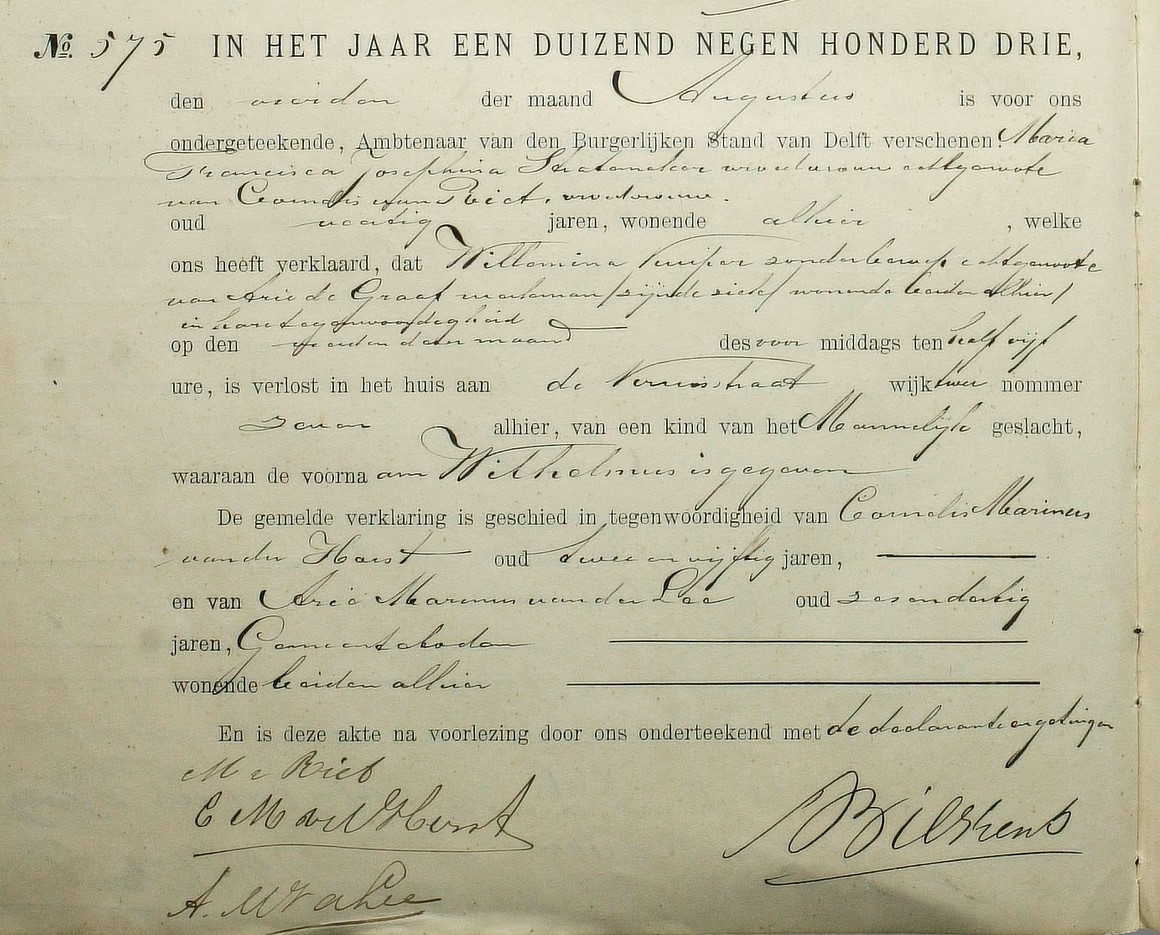 No. 575 IN HET JAAR EEN DUIZEND NEGEN HONDERD DRIE,
den vierden der maand Augustus is voor ons
ondergeteekende, Ambtenaar van den Burgerlijken Stand van Delft verschenen: Maria
Francisca Josephina Stratemaker vroedvrouw echtgenoote
van Cornelis van Riet, vroedvrouw.
oud veertig jaren, wonende alhier, welke
ons heeft verklaard, dat Willemina Kuiper zonder beroep echtgenoote
van Arie de Graaf werkman, zijnde wonende beiden alhier/
in hare tegenwoordigheid
op den vierden dezer maand des voor middags ten half vijf
ure, is verlost in het huis aan de Verwersstraat wijk twee nommer
zeven alhier, van een kind van het Mannelijk geslacht,
waaraan de voorna am Wilhelmus is gegeven
De gemelde verklaring is geschied in tegenwoordigheid van Cornelis Marinus
van der Horst oud twee en vijftig jaren,
en van Arie Marinus van der Lee oud zes en dertig
jaren, Gemeenteboden
wonende beiden alhier
En is deze akte na voorlezing door ons onderteekend met de declarante en getuigen
M v Riet
C M vd Horst
A. M vd Lee